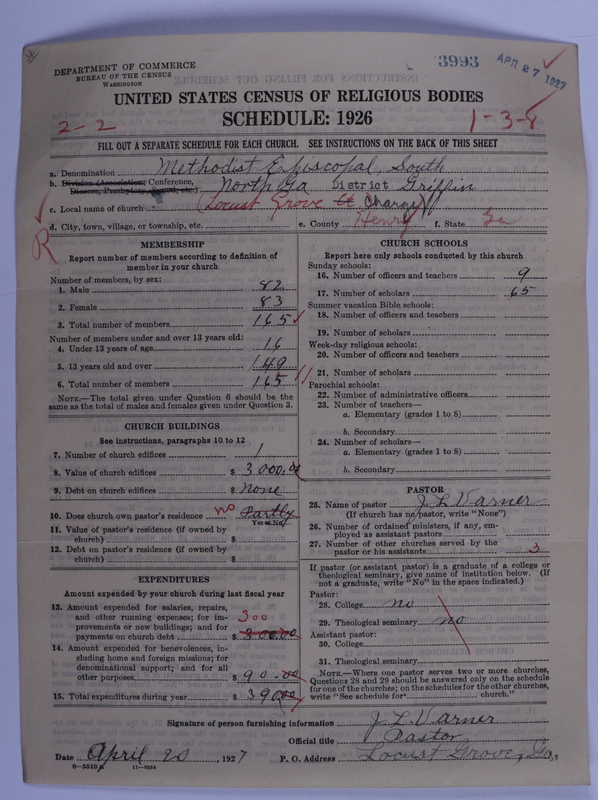 3993
APR 27 1927
DEPARTMENT OF COMMERCE
BUREAU OF THE CENSUS
WASHINGTON
UNITED STATES CENSUS OF RELIGIOUS BODIES
SCHEDULE: 1926
2-2
1-3-8
FILL OUT A SEPARATE SCHEDULE FOR EACH CHURCH. SEE INSTRUCTIONS ON THE BACK OF THIS SHEET
a. Denomination Methodist Episcopal, South
b. Division (Association, Conference, Diocese, Presbytery, Synod, etc.) North Ga District Griffin
c. Local name of church Locust Grove Charge
d. City, town, village, or township, etc. e. County Henry f. State Ga
R
MEMBERSHIP
Report number of members according to definition of
member in your church
Number of members, by sex:
1. Male 82
2. Female 83
3. Total number of members 165
Number of members under and over 13 years old:
4. Under 13 years of age 16
5. 13 years old and over 149
6. Total number of members 165
NOTE.—The total given under Question 6 should be the
same as the total of males and females given under Question 3.
CHURCH BUILDINGS
See instructions, paragraphs 10 to 12
7. Number of church edifices 1
8. Value of church edifices $ 3000.00
9. Debt on church edifices $ None
10. Does church own pastor's residence no Partly
Yes or No
11. Value of pastor's residence (if owned by
church) $
12. Debt on pastor's residence (if owned by
church) $
EXPENDITURES
Amount expended by your church during last fiscal year
13. Amount expended for salaries, repairs,
and other running expenses; for im-
provements or new buildings; and for
payments on church debt 300 $ 300.00
14. Amount expended for benevolences, in-
cluding home and foreign missions; for
denominational support; and for all
other purposes $ 90.00
15. Total expenditures during year $ 390.00
CHURCH SCHOOLS
Report here only schools conducted by this church
Sunday schools:
16. Number of officers and teachers 9
17. Number of scholars 65
Summer vacation Bible schools:
18. Number of officers and teachers
19. Number of scholars
Week-day religious schools:
20. Number of officers and teachers
21. Number of scholars
Parochial schools:
22. Number of administrative officers
23. Number of teachers—
a. Elementary (grades 1 to 8)
b. Secondary
24. Number of scholars—
a. Elementary (grades 1 to 8)
b. Secondary
PASTOR
25. Name of pastor J. L. Varner
(If church has no pastor, write "None")
26. Number of ordained ministers, if any, em-
ployed as assistant pastors
27. Number of other churches served by the
pastor or his assistants 3
If pastor (or assistant pastor) is a graduate of a college or
theological seminary, give name of institution below. (If
not a graduate, write "No" in the space indicated.)
Pastor:
28. College no
29. Theological seminary no
Assistant pastor:
30. College
31. Theological seminary
NOTE.—Where one pastor serves two or more churches,
Questions 28 and 29 should be answered only on the schedule
for one of the churches; on the schedules for the other churches,
write "See schedule for church."
Signature of person furnishing information J. L. Varner
Official title Pastor
Date April 20, 1927 P. O. Address Locust Grove, Ga.
8-5518a 11-9554